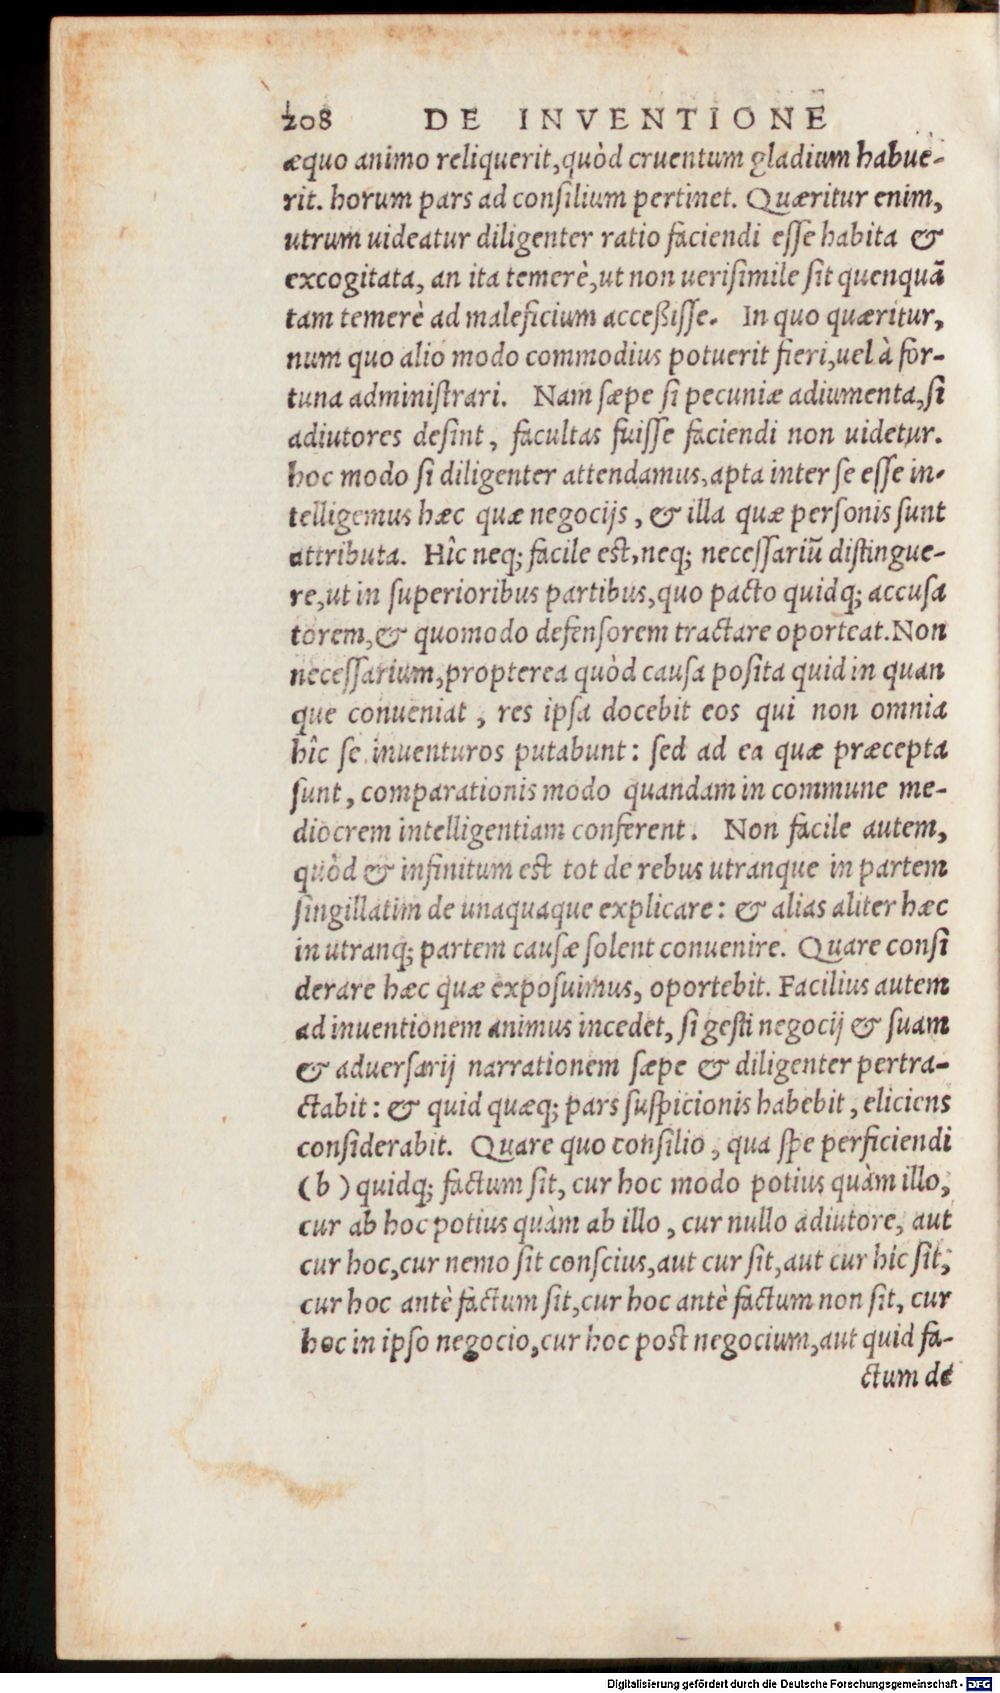 208 DE INVENTIONE
æquo animo reliquerit, quòd cruentum gladium habue-
rit. horum pars ad consilium pertinet. Quæritur enim,
utrum uideatur diligenter ratio faciendi esse habita &
excogitata, an ita temerè, ut non uerisimile sit quenquã
tam temerè ad maleficium acceßisse. In quo quæritur,
num quo alio modo commodius potuerit fieri, uel à for-
tuna administrari. Nam sæpe si pecuniæ adiumenta, si
adiutores desint, facultas fuisse faciendi non uidetur.
hoc modo si diligenter attendamus, apta inter se esse in-
telligemus hæc quæ negocijs, & illa quæ personis sunt
attributa. Hîc neq; facile est, neq; necessariũ distingue-
re, ut in superioribus partibus, quo pacto quidq; accusa
torem, & quomodo defensorem tractare oporteat. Non
necessarium, propterea quòd causa posita quid in quan
que conueniat, res ipsa docebit eos qui non omnia
hîc se inuenturos putabunt: sed ad ea quæ præcepta
sunt, comparationis modo quandam in commune me-
diocrem intelligentiam conferent. Non facile autem,
quòd & infinitum est tot de rebus utranque in partem
singillatim de unaquaque explicare: & alias aliter hæc
in utranq; partem causæ solent conuenire. Quare consi
derare hæc quæ exposuimus, oportebit. Facilius autem
ad inuentionem animus incedet, si gesti negocij & suam
& aduersarij narrationem sæpe & diligenter pertra-
ctabit: & quid quæq; pars suspicionis habebit, eliciens
considerabit. Quare quo consilio, qua spe perficiendi
(b) quidq; factum sit, cur hoc modo potius quàm illo,
cur ab hoc potius quàm ab illo, cur nullo adiutore, aut
cur hoc, cur nemo sit conscius, aut cur sit, aut cur hic sit,
cur hoc antè factum sit, cur hoc antè factum non sit, cur
hoc in ipso negocio, cur hoc post negocium, aut quid fa-
ctum de
Digitalisierung gefördert durch die Deutsche Forschungsgemeinschaft - DFG